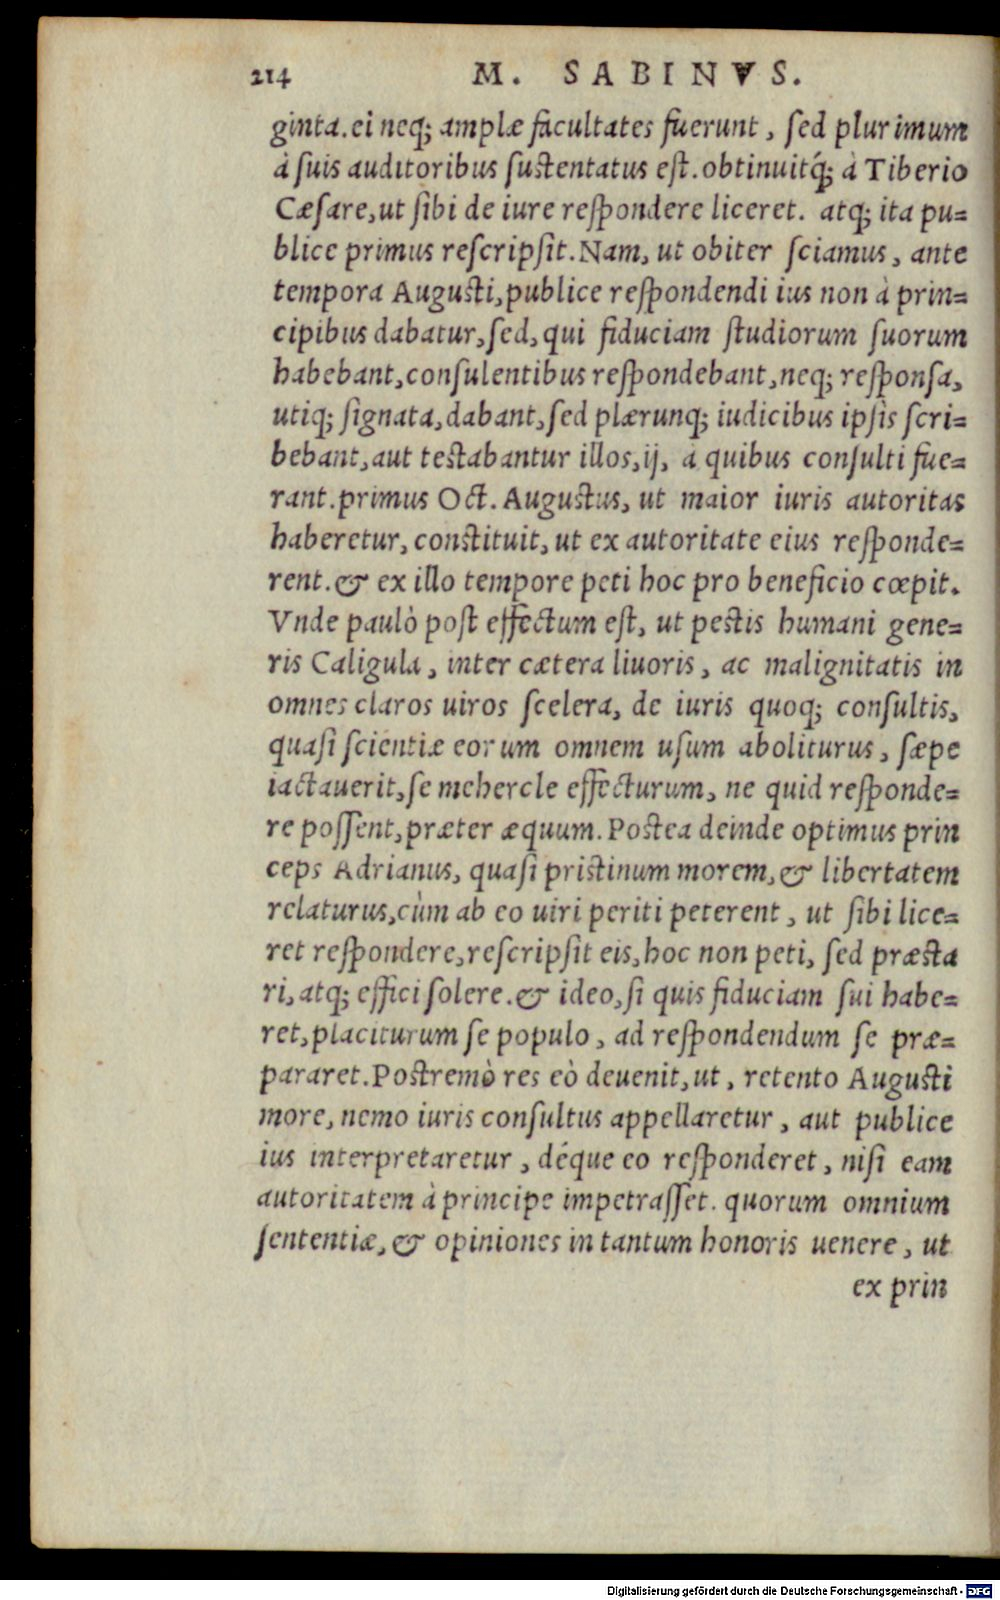 214 M. SABINVS.
ginta. ei neq; amplæ facultates fuerunt, sed plurimum
à suis auditoribus sustentatus est. obtinuitq́; à Tiberio
Cæsare, ut sibi de iure respondere liceret. atq; ita pu=
blice primus rescripsit. Nam, ut obiter sciamus, ante
tempora Augusti, publice respondendi ius non à prin=
cipibus dabatur, sed, qui fiduciam studiorum suorum
habebant, consulentibus respondebant, neq; responsa,
utiq; signata, dabant, sed plærunq; iudicibus ipsis scri=
bebant, aut testabantur illos, ij, à quibus consulti fue=
rant. primus Oct. Augustus, ut maior iuris autoritas
haberetur, constituit, ut ex autoritate eius responde=
rent. & ex illo tempore peti hoc pro beneficio cœpit.
Vnde paulò post effectum est, ut pestis humani gene=
ris Caligula, inter cætera liuoris, ac malignitatis in
omnes claros uiros scelera, de iuris quoq; consultis,
quasi scientiæ eorum omnem usum aboliturus, sæpe
iactauerit, se mehercle effecturum, ne quid responde=
re possent, præter æquum. Postea deinde optimus prin
ceps Adrianus, quasi pristinum morem, & libertatem
relaturus, cùm ab eo uiri periti peterent, ut sibi lice=
ret respondere, rescripsit eis, hoc non peti, sed præsta
ri, atq; effici solere. & ideo, si quis fiduciam sui habe=
ret, placiturum se populo, ad respondendum se præ=
pararet. Postremò res eò deuenit, ut, retento Augusti
more, nemo iuris consultus appellaretur, aut publice
ius interpretaretur, déque eo responderet, nisi eam
autoritatem à principe impetrasset. quorum omnium
sententiæ, & opiniones in tantum honoris uenere, ut
ex prin
Digitalisierung gefördert durch die Deutsche Forschungsgemeinschaft - DFG